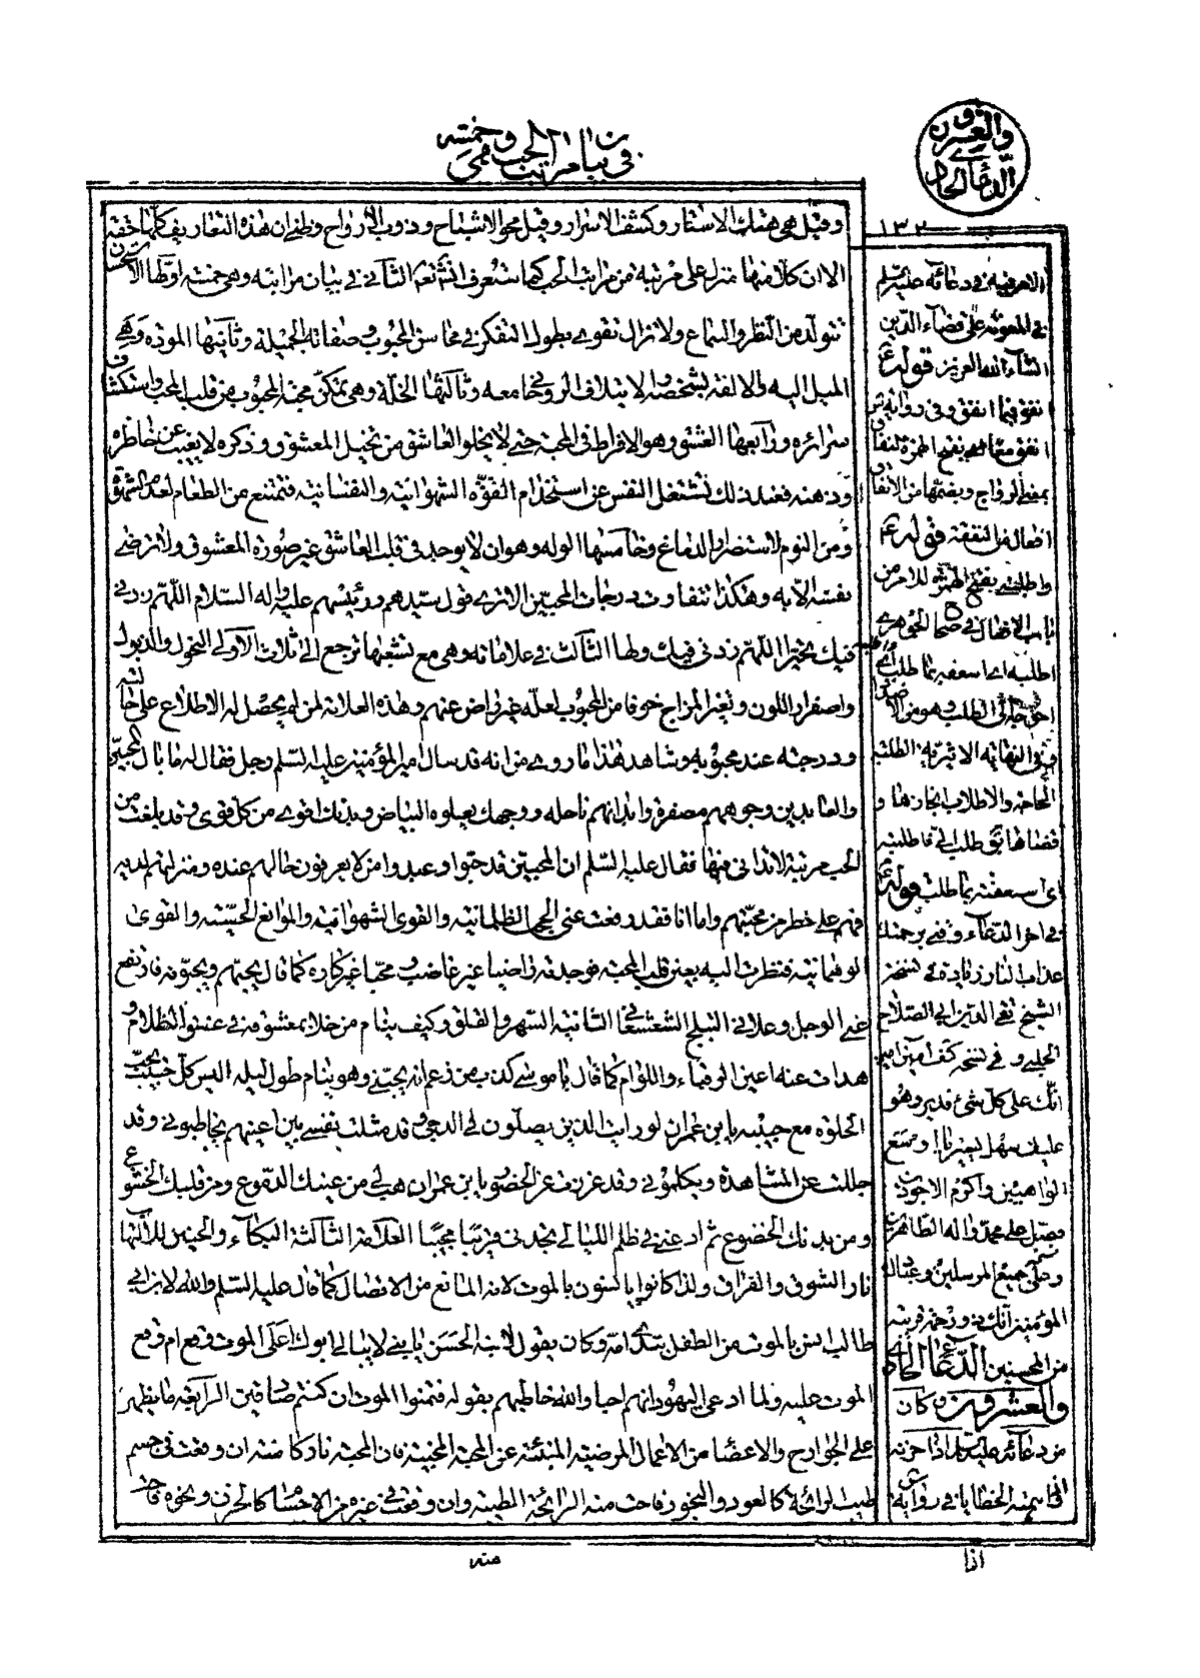 في بيان مراتب الحب وهي خمسة
والعشرون
الدعاء الحادي
١٣٢
وقيل هي هتك الاستار وكشف الاسرار وقيل محو الاشباح وذوب الأرواح وظني ان هذه التعاريف كلها حقة
الا ان كلا منها منزل على مرتبة من مراتب الحب كما ستعرف انشئتعم الثاني في بيان مراتبه وهي خمسة اولها الاستحسان
تتولد من النظر والسماع ولا تزال تقوى بطول التفكر في محاسن المحبوب وصفاته الجميلة وثانيتها المودة وهي
الميل اليه والالفة بشخصه والايتلاف الروحاني معه وثالثتها الخلة وهي تمكن محبة المحبوب من قلب المحب واستكشاف
سرائره ورابعها العشق وهو الافراط في المحبة حتى لا يخلو العاشق من تخيل المعشوق وذكره لا يغيب عن خاطره
وذهنه فعند ذلك تشتغل النفس عن استخدام القوة الشهوانية والنفسانية فتمتنع من الطعام لعدم الشهوة
ومن النوم لاستضرار الدماغ وخامسها الوله وهو ان لا يوجد في قلب العاشق غير صورة المعشوق ولا ترضى
نفسه الا به وهكذا تتفاوت درجات المحبين الا ترى قول سيدهم ورئيسهم عليه واله السلام اللهم زدني
فيك تحيرا اللهم زدني فيك ولها الثالث في علاماته وهي مع تشعبها ترجع الى ثلاث الاولى النحول والذبول
واصفرار اللون وتغير المزاج خوفا من المحبوب لعله غير راض عنهم وهذه العلامة لمن لم يحصل له الاطلاع على حاله
ودرجته عند محبوبه وشاهد هذا ما روى من انه قد سال امير المؤمنين عليه السلم رجل فقال له ما بال المحبين
والعابدين وجوههم مصفرة وابدانهم ناحلة ووجهك يعلوه البياض وبدنك اقوى من كل قوى وقد بلغت من
الحب مرتبة لا تدانى فيها فقال عليه السلم ان المحبين قد حبوا وعبدوا من لا يعرفون حالهم عنده ومنزلتهم لديه
فهم على خطر من محبتهم واما انا فقد رفعت عنى الحجب الظلمانية والقوى الشهوانية والموانع الحسية والقوى
الوهمانية فنظرت اليه بعين قلب المحبة فوجدته راضيا غير غاضب ومحبا غير كاره كما قال يحبهم ويحبونه فارتفع
عنى الوجل وعلانى البلج الشعشعانى الثانية السهر والقلق وكيف ينام من خلا بمعشوقه في غسق الظلام و
هدات عنه اعين الرقباء واللوام كما قال يا موسى كذب من زعم انه يحبنى وهو ينام طول ليله اليس كل حبيب يحب
الخلوة مع حبيبه يا بن عمران لو رايت الذين يصلون لى الدجى وقد مثلت نفسى بين اعينهم يخاطبونى وقد
جللت عن المشاهدة ويكلمونى وقد عززت عن الحضور يا بن عمران هب لى من عينك الدموع ومن قلبك الخشوع
ومن بدنك الخضوع ثم ادعنى في ظلم الليالى تجدنى قريبا مجيبا العلامة الثالثة البكاء والحنين للالتهاب
نار الشوق والفراق ولذا كانوا يانسون بالموت لانه المانع من الاتصال كما قال عليه السلم والله لابن ابى
طالب انس بالموت من الطفل بثدى امه وكان يقول لابنه الحسن يا بنى لا يبالى ابوك اعلى الموت وقع ام وقع
الموت عليه ولما ادعى اليهود انهم احباء الله خاطبهم بقوله فتمنوا الموت ان كنتم صادقين الرابعة ما يظهر
على الجوارح والاعضا من الاعمال المرضية المنبئة عن المحبة المخبية فان المحبة نار كامنة ان وقعت في جسم
طيب الرائحة كالعود والبخور فاحت منه الرائحة الطيبة وان وقعت في غيره من الاجسام كالحرف ونحوه فاحت
منه
الامر فيه في دعائه عليه السلم
في المعونة على قضاء الدين
انشاء الله العزيز قوله ع
انفق فيما انفق وفي رواية س
انفق معا لهم بفتح الهمزة النفاق
بمعنى الرواج وبضمها من الانفاق
افعال من النفقة قوله ع
واطلبني بفتح الهمزة للامر من
باب الافعال في صحاح الجوهرى
اطلبه اى اسعفه بما طلب واطلبه
احوجه الى الطلب وهو من الاضداد
وفي النهاية الاثيرية الطلبة
الحاجة والاطلاب انجازها و
قضائها يق طلب الى فاطلبته
اى اسعفته بما طلب قوله ع
في اخر الدعاء وقنى برحمتك
عذاب النار زيادة في نسخة
الشيخ تقى الدين ابى الصلاح
الحلبى وفي نسخة كف امين امين
انك على كل شىء قدير وهو
عليك سهل يسير يا اوسع
الواهبين واكرم الاجودين
فصل على محمد واله الطاهرين
وعلى جميع المرسلين وعبادك
المؤمنين انك ذو رحمة قريبة
من المحسنين الدعاء الحادي
والعشرون وكان
من دعائه عليه السلم اذا حزنه
امر واهمته الخطايا في رواية س
اذا